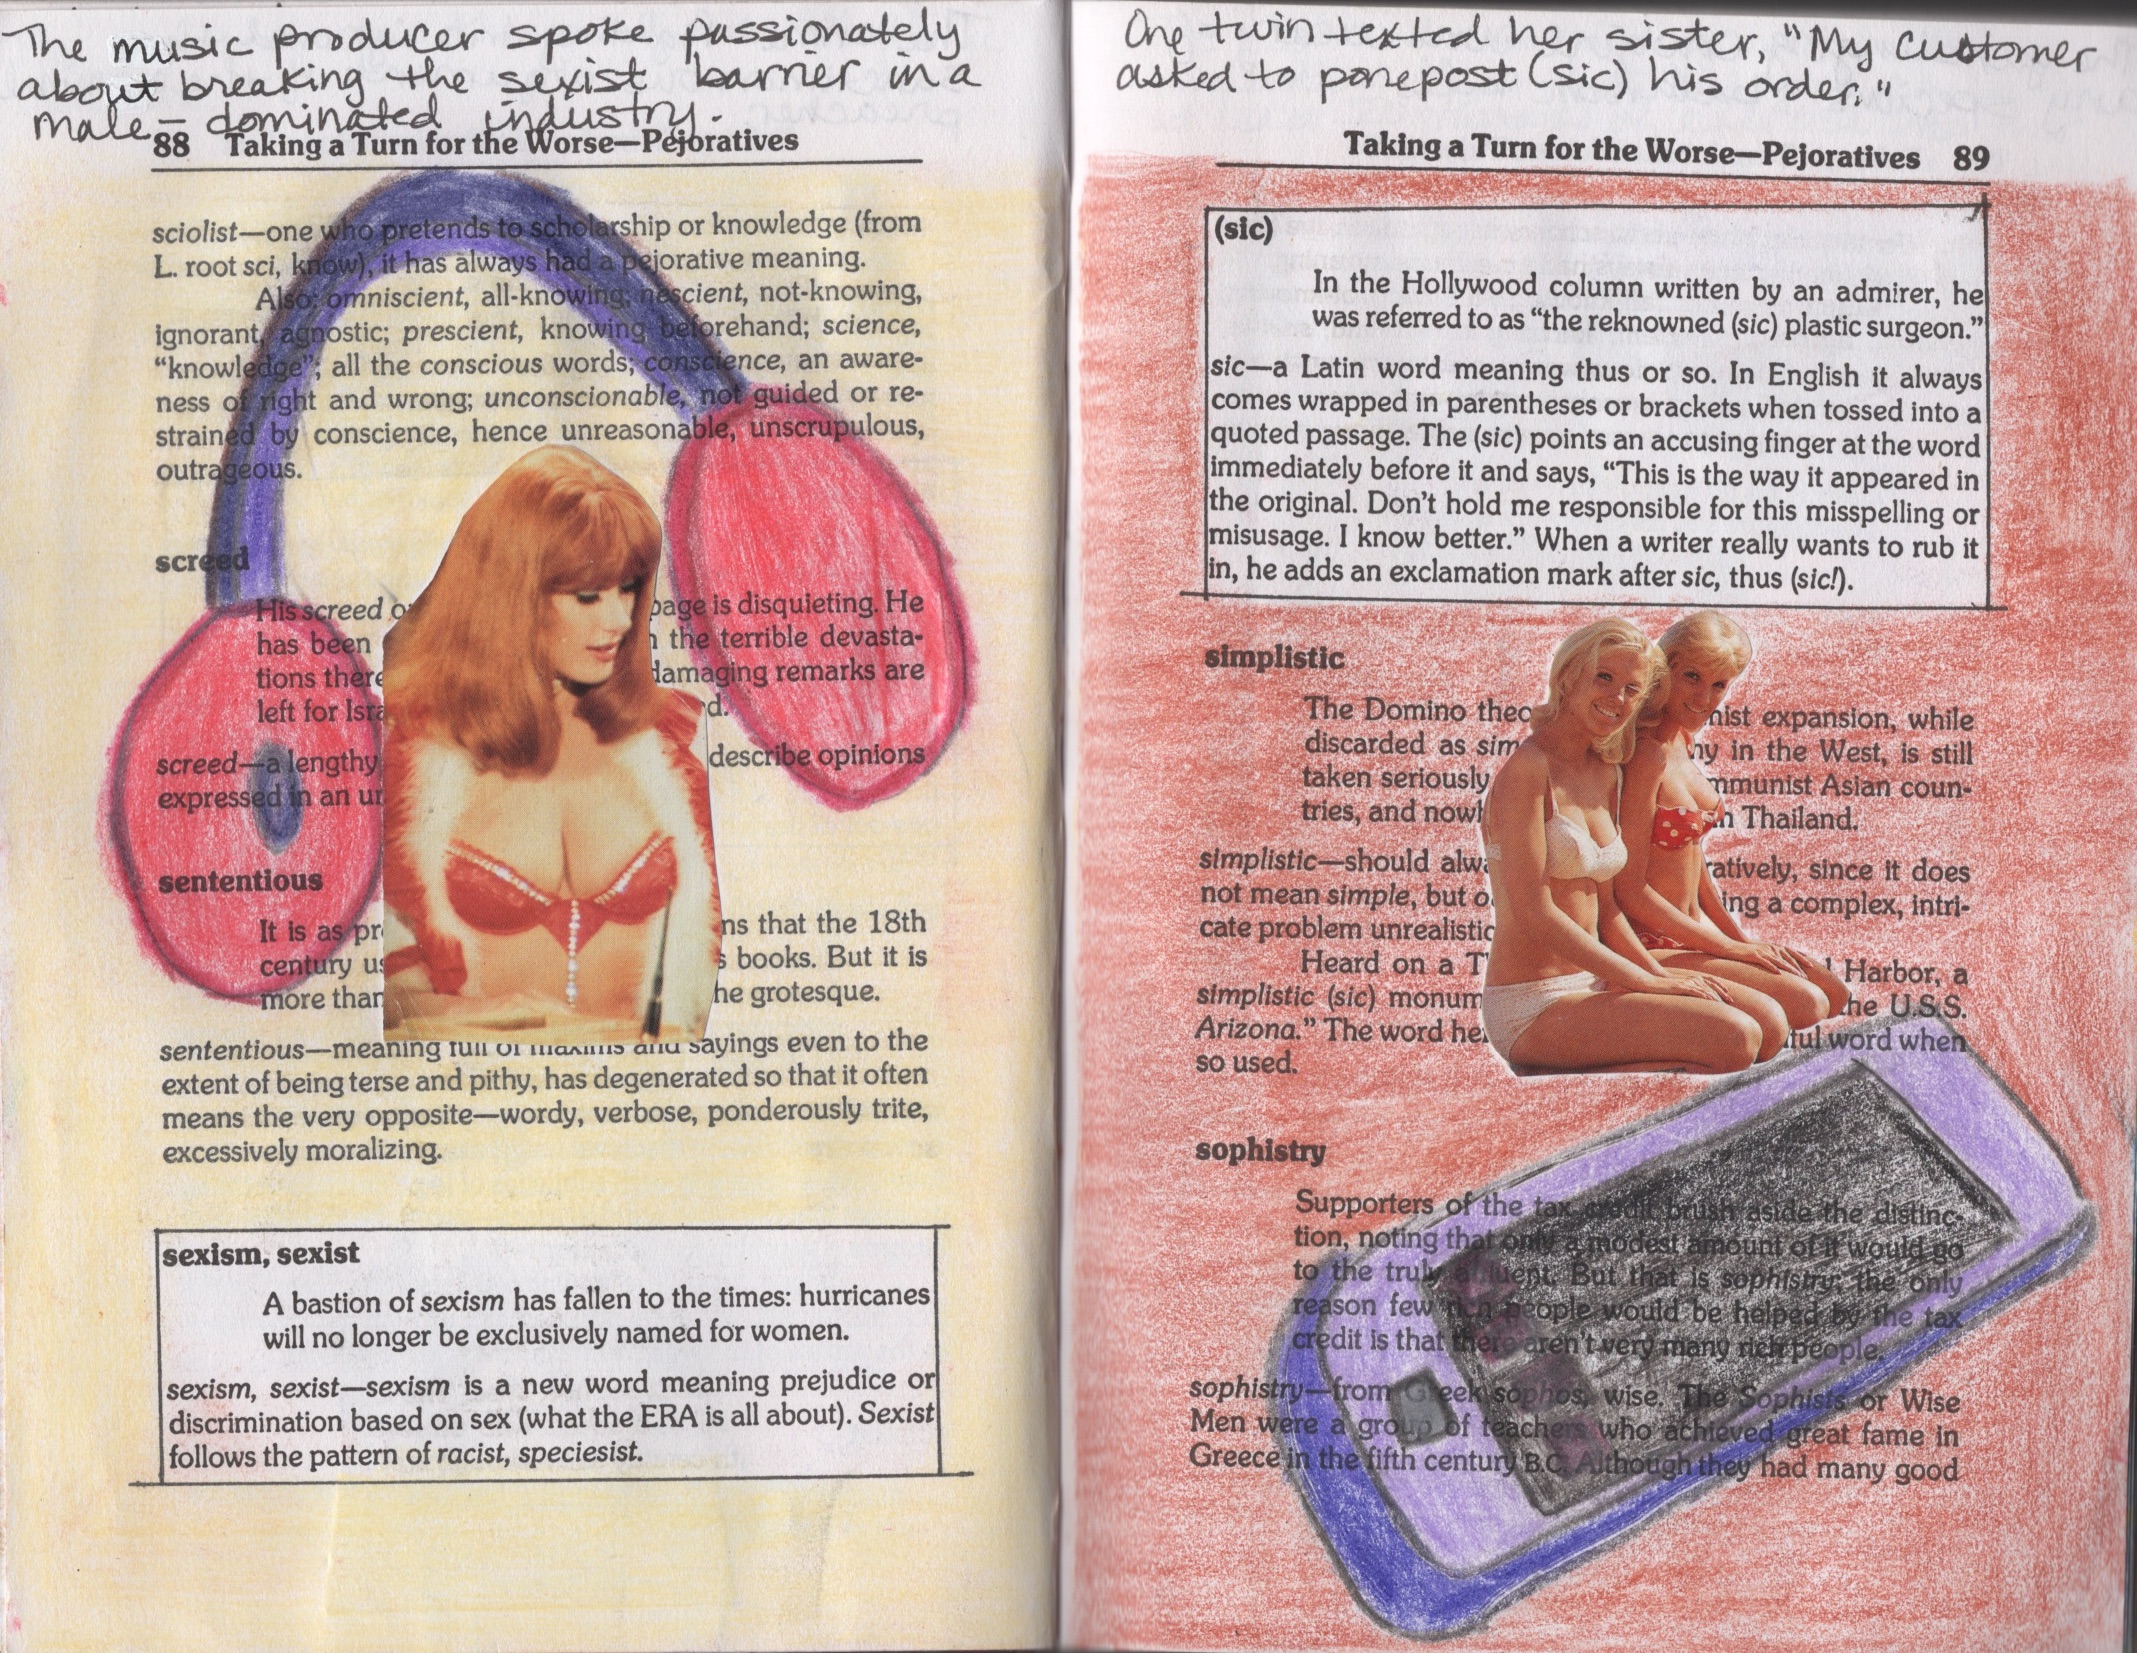 The music producer spoke passionately
about breaking the sexist barrier in a
male-dominated industry.
88 Taking a Turn for the Worse—Pejoratives
sciolist—one who pretends to scholarship or knowledge (from
L. root sci, know), it has always had a pejorative meaning.
Also: omniscient, all-knowing; nescient, not-knowing,
ignorant, agnostic; prescient, knowing beforehand; science,
“knowledge”; all the conscious words; conscience, an aware-
ness of right and wrong; unconscionable, not guided or re-
strained by conscience, hence unreasonable, unscrupulous,
outrageous.
screed
His screed page is disquieting. He
has been the terrible devasta-
tions there damaging remarks are
left for
screed—a lengthy describe opinions
expressed in an
sententious
It is as that the 18th
century books. But it is
more than the grotesque.
sententious—meaning full of maxims and sayings even to the
extent of being terse and pithy, has degenerated so that it often
means the very opposite—wordy, verbose, ponderously trite,
excessively moralizing.
sexism, sexist
A bastion of sexism has fallen to the times: hurricanes
will no longer be exclusively named for women.
sexism, sexist—sexism is a new word meaning prejudice or
discrimination based on sex (what the ERA is all about). Sexist
follows the pattern of racist, speciesist.
One twin texted her sister, "My customer
asked to ponepost (sic) his order."
Taking a Turn for the Worse—Pejoratives 89
(sic)
In the Hollywood column written by an admirer, he
was referred to as “the reknowned (sic) plastic surgeon.”
sic—a Latin word meaning thus or so. In English it always
comes wrapped in parentheses or brackets when tossed into a
quoted passage. The (sic) points an accusing finger at the word
immediately before it and says, “This is the way it appeared in
the original. Don’t hold me responsible for this misspelling or
misusage. I know better.” When a writer really wants to rub it
in, he adds an exclamation mark after sic, thus (sic!).
simplistic
The Domino expansion, while
discarded as in the West, is still
taken seriously Asian coun-
tries, and Thailand.
simplistic—should since it does
not mean simple, but a complex, intri-
cate problem
Heard on a Harbor, a
simplistic (sic) the U.S.S.
Arizona.” The word word when
so used.
sophistry
Supporters of the tax credit brush aside the distinc-
tion, noting that only a modest amount of it would go
to the truly affluent. But that is sophistry; the only
reason few rich people would be helped by the tax
credit is that there aren’t very many rich people.
sophistry—from Greek sophos, wise. The Sophists or Wise
Men were a group of teachers who achieved great fame in
Greece in the fifth century B.C. Although they had many good